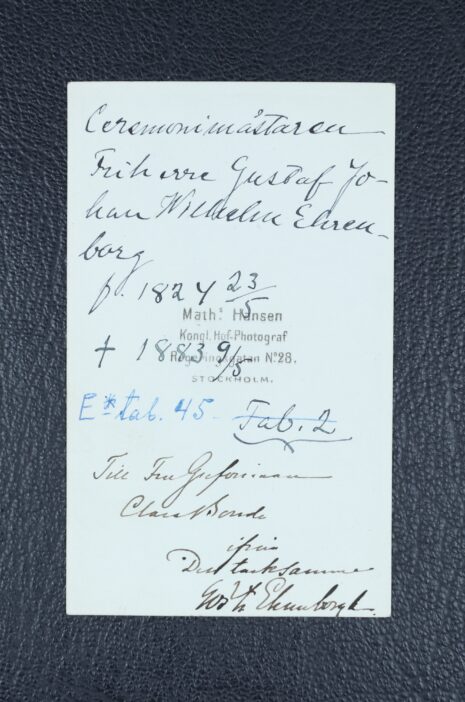 Ceremonimästaren
Friherre Gustaf Jo-
han Wilhelm Ehren-
borg
f. 1824 23/5
Math.s Hansen
Kongl. Hof-Photograf
† 1883 9/5
Regeringsgatan No 28.
STOCKHOLM.
E* tab. 45 - Tab. 2
Till Fru Grefvinnan
Claes Bonde
ifrån
Den tacksamme
Ehrenborgh